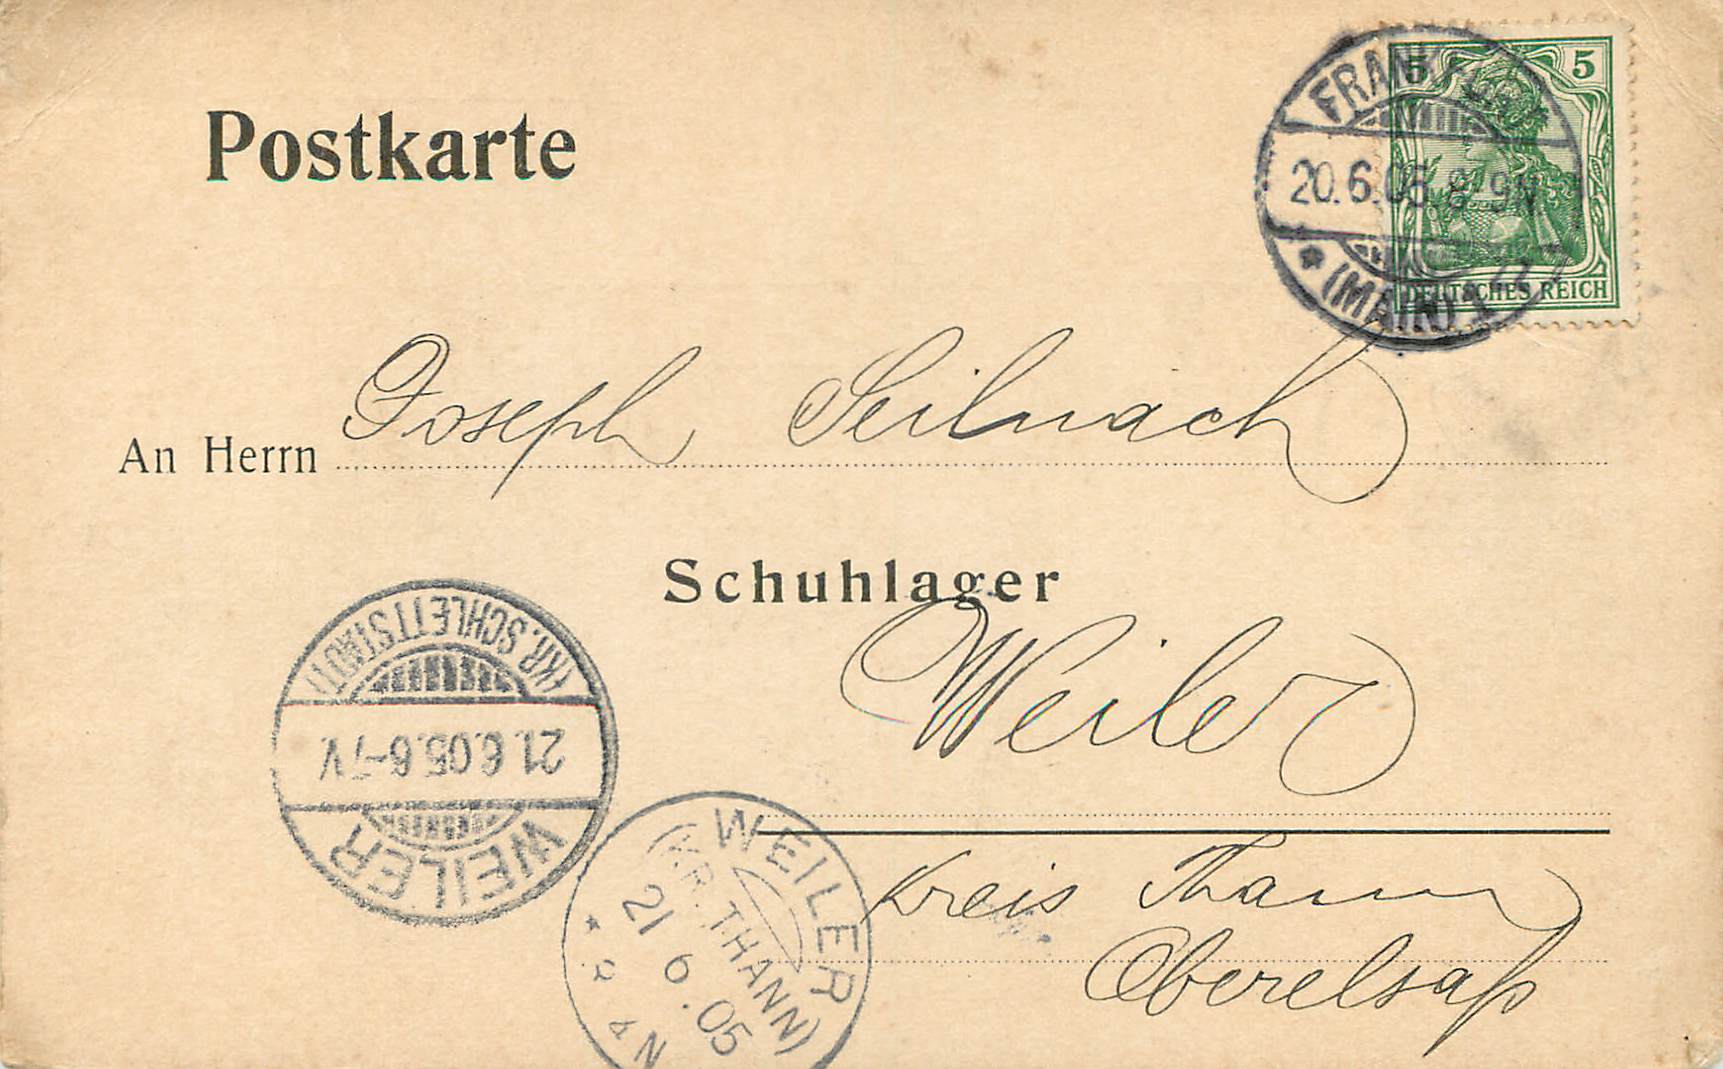 5 5
DEUTSCHES REICH
FRANKFURT
20.6.05. 8-9N
* (MAIN) 1
Postkarte
An Herrn Joseph Seilnach
Schuhlager
Weiler
Kreis Thann
Oberelsaß
(KR. SCHLETTSTADT)
21.6.05.6-7V.
WEILER
WEILER
(KR. THANN)
21 6.05
* N